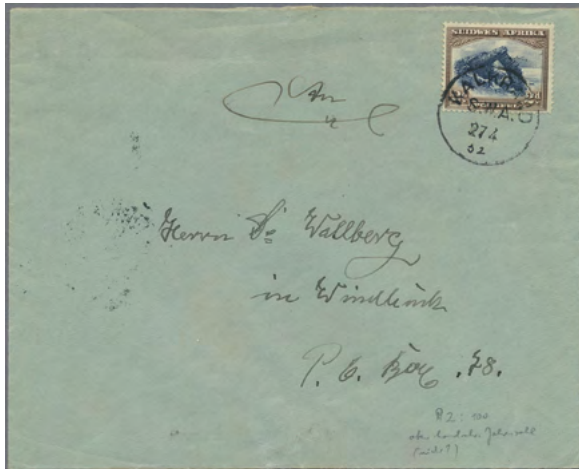 SUIDWES AFRIKA
S.W.A.
274
32
An
Herrn Dr Wallberg
in Windhuk
P. O. Box . 78.